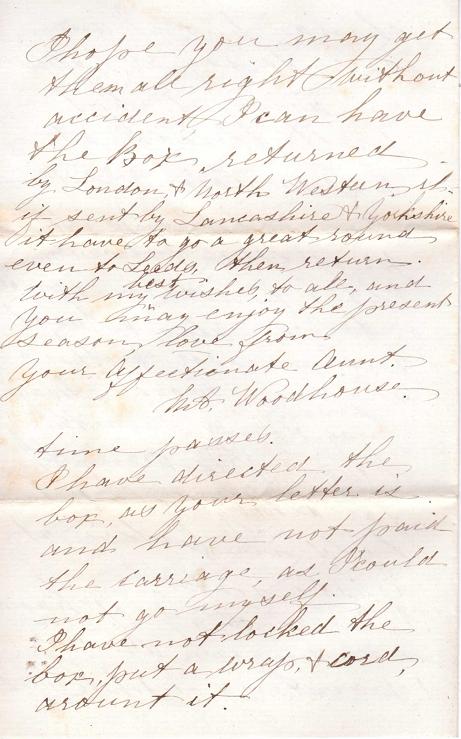 I hope you may get
them all right without
accident, I can have
the box returned
by London, & North Western
if sent by Lancashire & Yorkshire
it have to go a great round
even to Leeds, then return.
With my best wishes, to all, and
you may enjoy the present
season, love from
your affectionate Aunt.
Woodhouse.
time passes.
I have directed the
box, as your letter is
and have not paid
the carriage, as I could
not go myself.
I have not locked the
box, put a wrap, & cord,
arount it.